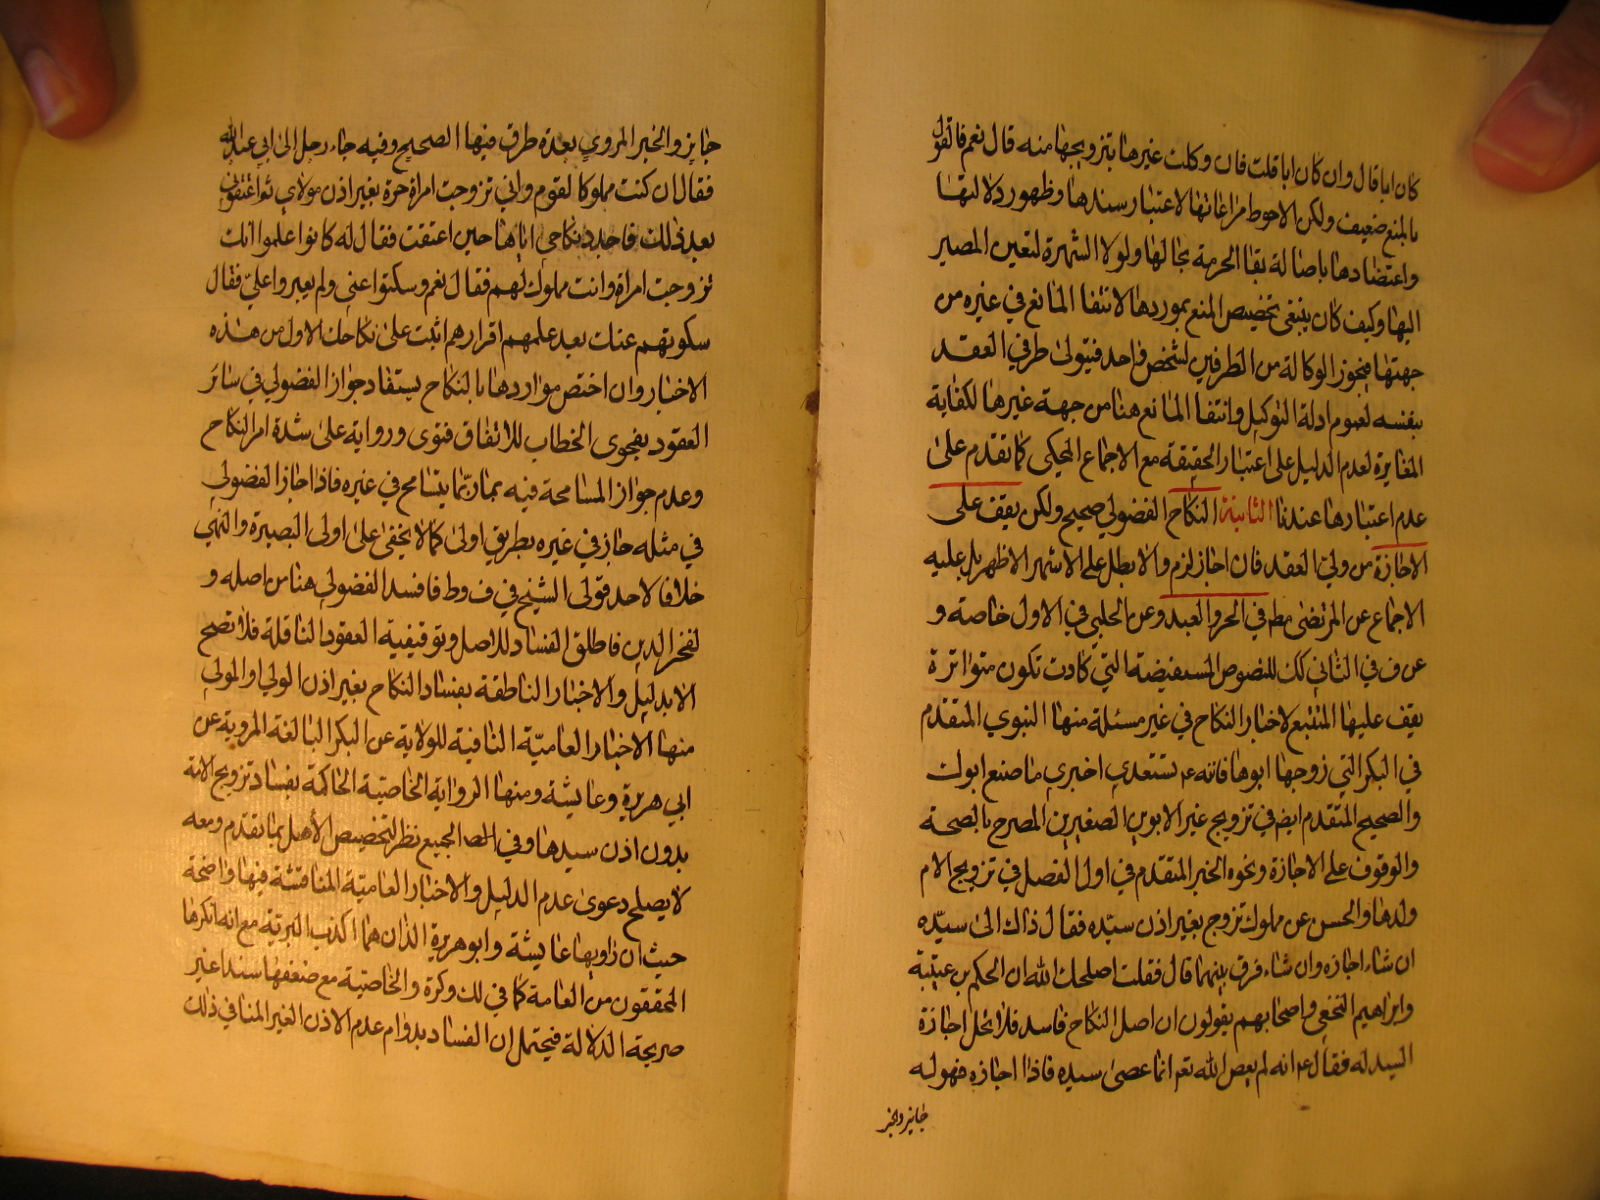 كان ابا قال وان كان ابا قلت فان وكلت غيرها بتزويجها منه قال نعم فالقول
بالمنع ضعيف ولكن الاحوط مراعاتها لاعتبار سندها وظهور دلالتها
واعتضادها باصالة بقا الحرمة بحالها ولولا الشهرة لتعين المصير
اليها وكيف كان ينبغي تخصيص المنع بموردها لانتفا المانع في غيره من
جهتها فيجوز الوكالة من الطرفين لشخص واحد فيتولى طرفي العقد
بنفسه لعموم ادلة التوكيل وانتفا المانع هنا من جهة غيرها لكفاية
المغايرة لعدم الدليل على اعتبار الحقيقة مع الاجماع المحكي كما تقدم على
عدم اعتبارها عندنا الثانية النكاح الفضولي صحيح ولكن يقف على
الاجازة من ولي العقد فان اجاز لزم والا بطل على الاشهر الاظهر بل عليه
الاجماع عن المرتضى مط في الحر والعبد وعن الحلبي في الاول خاصة و
عن ف في الثاني كك للنصوص المستفيضة التي كادت تكون متواترة
يقف عليها المتتبع لاخبار النكاح في غير مسئلة منها النبوي المتقدم
في البكر التي زوجها ابوها فاتته ع تستعدي اخيري ما صنع ابوك
والصحيح المتقدم ايض في تزويج غير الابوين الصغيرين المصرح بالصحة
والوقوف على الاجازة ونحوه الخبر المتقدم في اول الفصل في تزويج الام
ولدها والحسن عن مملوك تزوج بغير اذن سيده فقال ذاك الى سيده
ان شاء اجازه وان شاء فرق بينهما قال فقلت اصلحك الله ان الحكم بن عتيبة
وابراهيم النخعي واصحابهم يقولون ان اصل النكاح فاسد فلا تحل اجازة
السيد له فقال ع انه لم يعص الله تعه انما عصى سيده فاذا اجازه فهو له
جايز والخبر
جايز والخبر المروي بعدة طرق فيها الصحيح وفيه جاء رجل الى ابي عبدالله
فقال ان كنت مملوكا لقوم واني تزوجت امراة حرة بغير اذن مولاي ثم اعتقوني
بعد ذلك فاجدد نكاحي اياها حين اعتقت فقال له كانوا علموا انك
تزوجت امراة وانت مملوك لهم فقال نعم وسكتوا عني ولم يعيروا علي فقال
سكوتهم عنك بعد علمهم اقرارهم اثبت على نكاحك الاول من هذه
الاخبار وان اختص مواردها بالنكاح يستفاد جواز الفضولي في سائر
العقود بفحوى الخطاب للاتفاق فتوى ورواية على شدة امر النكاح
وعدم جواز المسامحة فيه بما ربما يتسامح في غيره فاذا جاز الفضولي
في مثله جاز في غيره بطريق اولى كما لا يخفى على اولى البصيرة والنهي
خلافا لاحد قولي الشيخ في ف وط فافسد الفضولي هنا من اصله و
لفخر الدين فاطلق الفساد للاصل وتوقيفية العقود الناقلة فلا تصح
الا بدليل والاخبار الناطقة بفساد النكاح بغير اذن الولي والمولى
منها الاخبار العامية النافية للولاية عن البكر البالغة المروية عن
ابي هريرة وعايشة ومنها الرواية الخاصية الحاكمة بفساد تزويج الامة
بدون اذن سيدها وفي الجميع نظر لتخصيص الأصل بما تقدم ومعه
لا يصلح دعوى عدم الدليل والاخبار العامية المناقشة فيها واضحة
حيث ان راويها عايشة وابو هريرة الذان هما اكذب البرية مع انه انكرها
المحققون من العامة كما في لك وكرة والخاصية مع ضعفها سندا غير
صريحة الدلالة فيحتمل ان الفساد بدوام عدم الاذن الغير المنافي ذلك